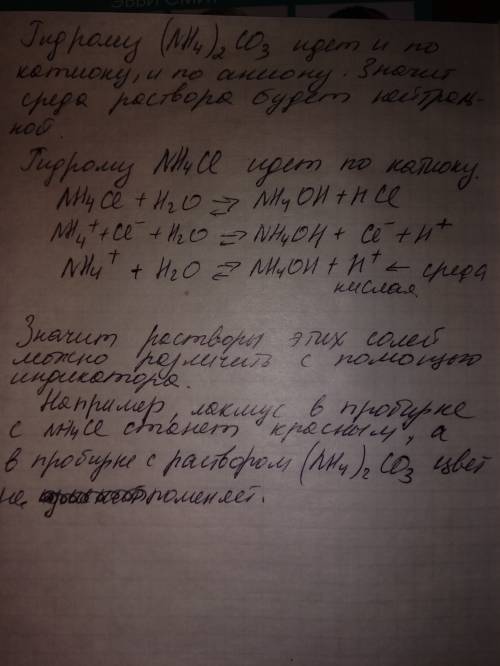 Гидролиз (NH4)2CO3 идет и по
катиону, и по аниону. Значит
среда раствора будет нейтраль-
ной.
Гидролиз NH4Cl идет по катиону.
NH4Cl + H2O ⇄ NH4OH + HCl
NH4⁺ + Cl⁻ + H2O ⇄ NH4OH + Cl⁻ + H⁺
NH4⁺ + H2O ⇄ NH4OH + H⁺ ← среда
кислая
Значит растворы этих солей
можно различить с помощью
индикатора.
Например, лакмус в пробирке
с NH4Cl станет красным, а
в пробирке с раствором (NH4)2CO3 цвет
не поменяет.